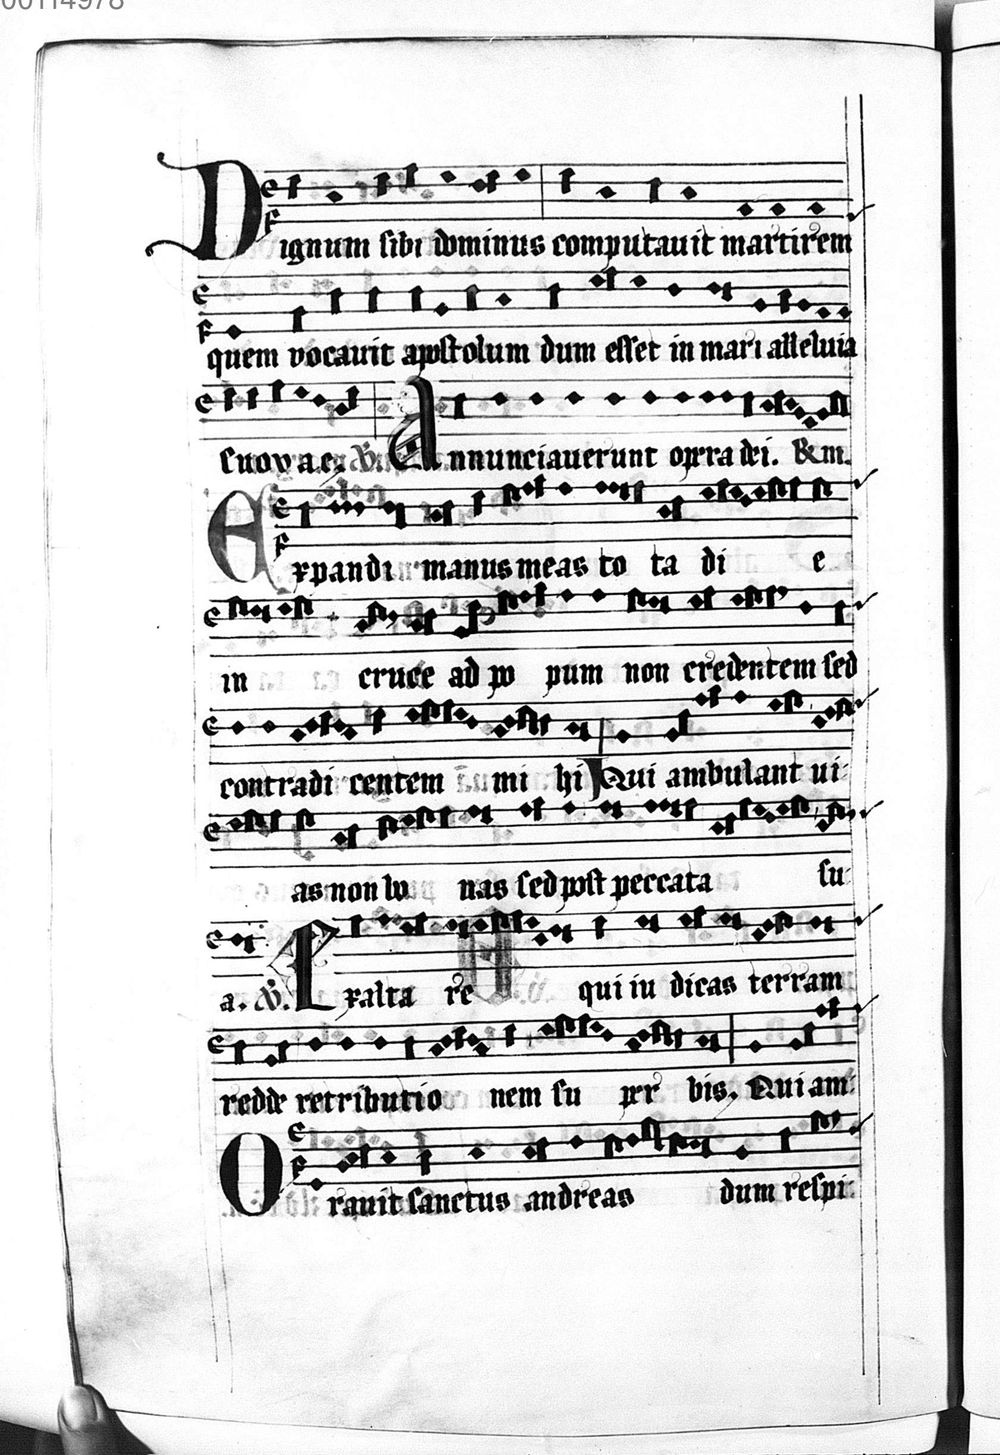 00114978
Dignum sibi dominus computauit martirem
quem vocauit apostolum dum esset in mari alleluia
Euouae. V. Annunciauerunt opera dei. & m.
Expandi manus meas to ta di e
in cruce ad po pum non credentem sed
contradi centem mi hi Qui ambulant ui
as non bo nas sed post peccata su
a. V. Exalta re qui iu dicas terram
redde retributio nem su per bis. Qui am
Orauit sanctus andreas dum respi